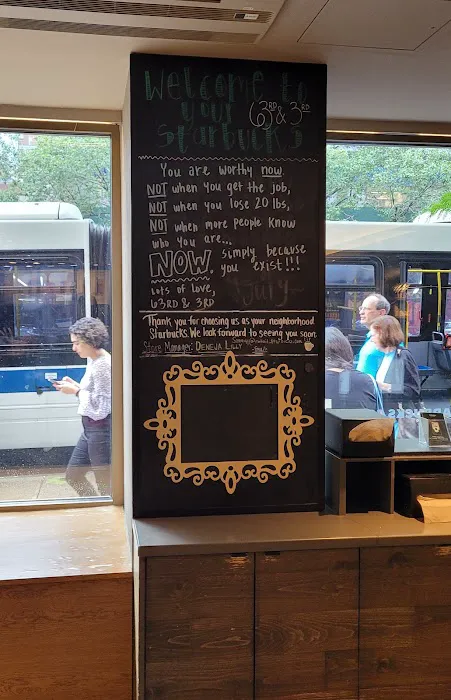 Welcome to
your
Starbucks
63RD & 3RD
You are worthy now.
NOT when you get the job,
NOT when you lose 20 lbs,
NOT when more people know
who you are...
NOW, simply because
you exist!!!
Lots of Love,
63RD & 3RD
Thank you for choosing us as your neighborhood
Starbucks. We look forward to seeing you soon.
Store Manager: DENEJA LILLY